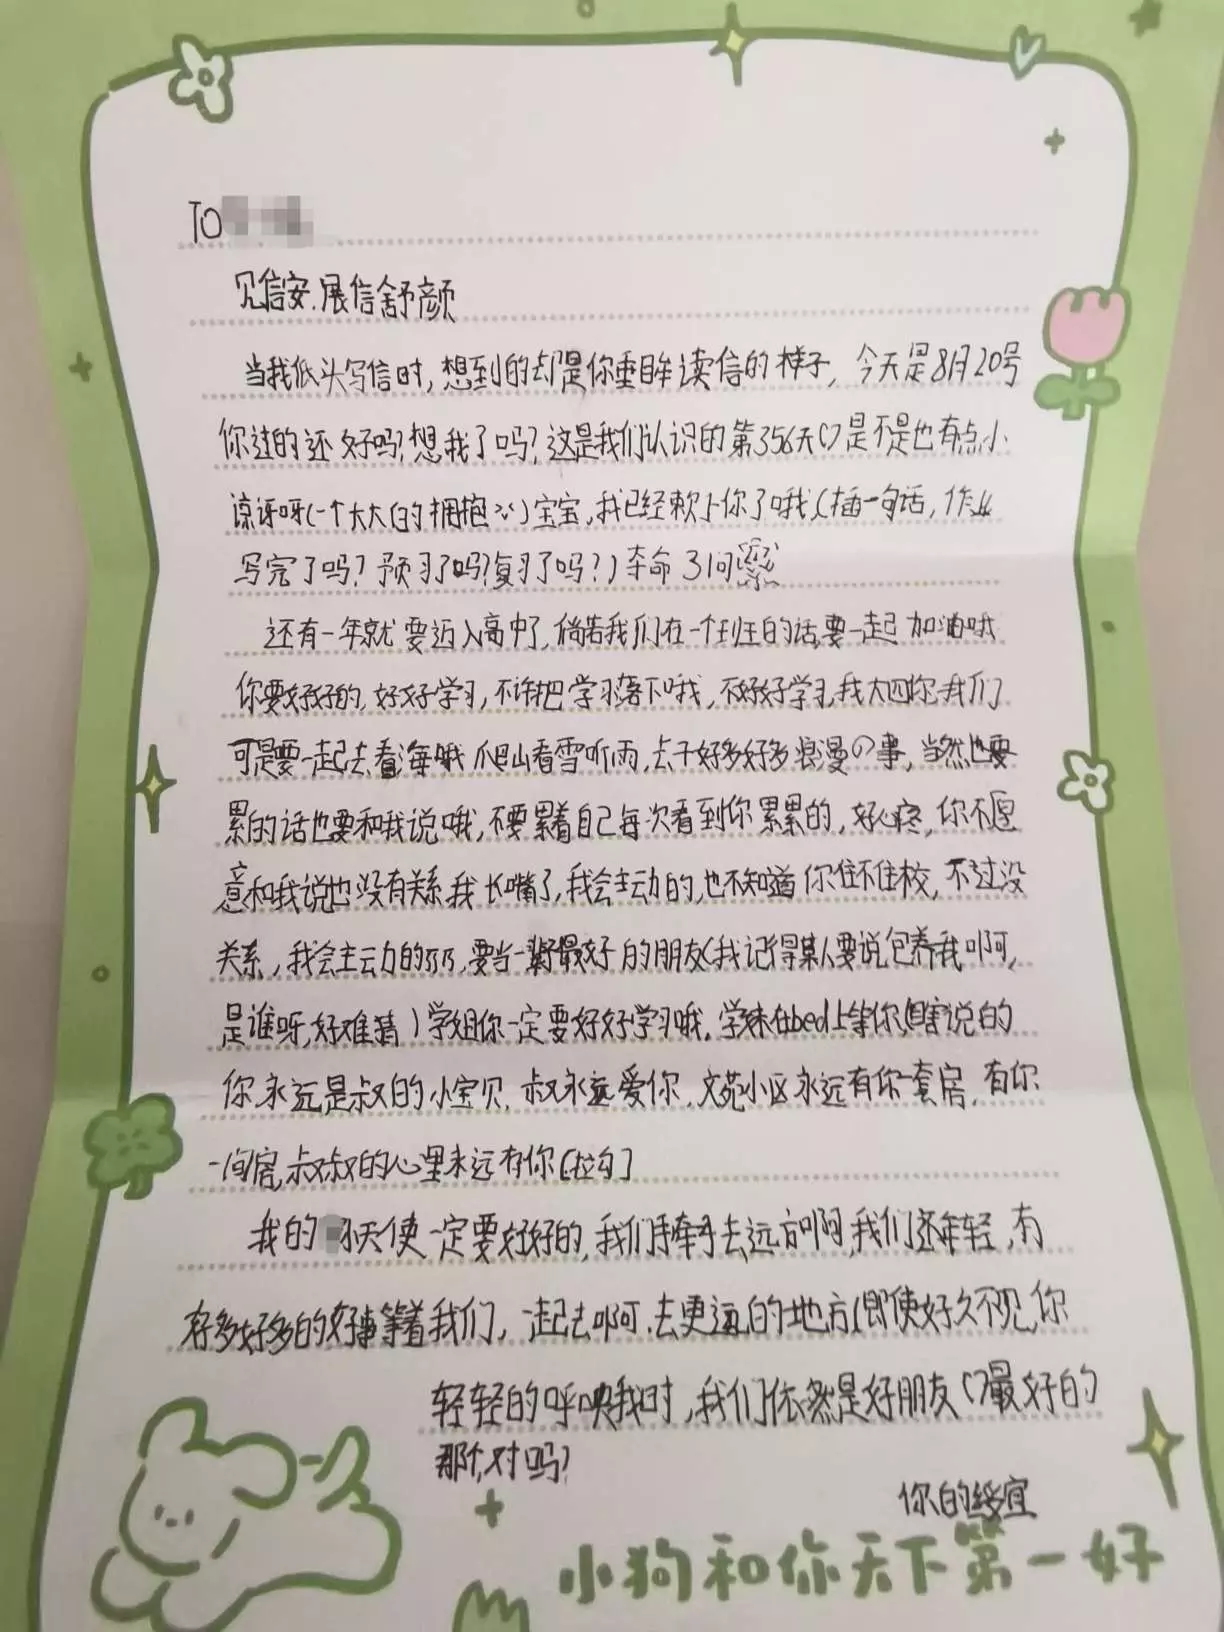 TO
见信安.展信舒颜
当我低头写信时,想到的却是你垂眸读信的样子,今天是8月20号
你过的还好吗?想我了吗?这是我们认识的第356天()是不是也有点小
惊讶呀(一个大大的拥抱)宝宝,我已经赖上你了哦,(插一句话,作业
写完了吗?预习了吗?复习了吗?)夺命3问
还有一年就要迈入高中了,倘若我们在一个班的话,要一起加油哦
你要好好的,好好学习,不许把学习落下哦,不好好学习,我大四你我们
可是要一起去看海哦 爬山看雪听雨,去干好多好多浪漫の事,当然也要
累的话也要和我说哦,不要累着自己每次看到你累累的,好心疼,你不愿
意和我说也没有关系,我长嘴了,我会主动的,也不知道你住不住校,不过没
关系,我会主动的,要当一辈子最好的朋友(我记得某人要说包养我啊,
是谁呀,好难猜)学姐你一定要好好学习哦.学妹在bed上等你(瞎说的
你永远是叔的小宝贝.叔永远爱你.文苑小区永远有你一套房.有你
一间房,叔叔的心里永远有你[拉勾]
我的天使一定要好好的,我们手牵手去远方啊,我们还年轻,有
好多好多的好事等着我们,一起去啊.去更远的地方(即使好久不见,你
轻轻的呼唤我时,我们依然是好朋友()最好的
那个,对吗?
你的绥宜
小狗和你天下第一好